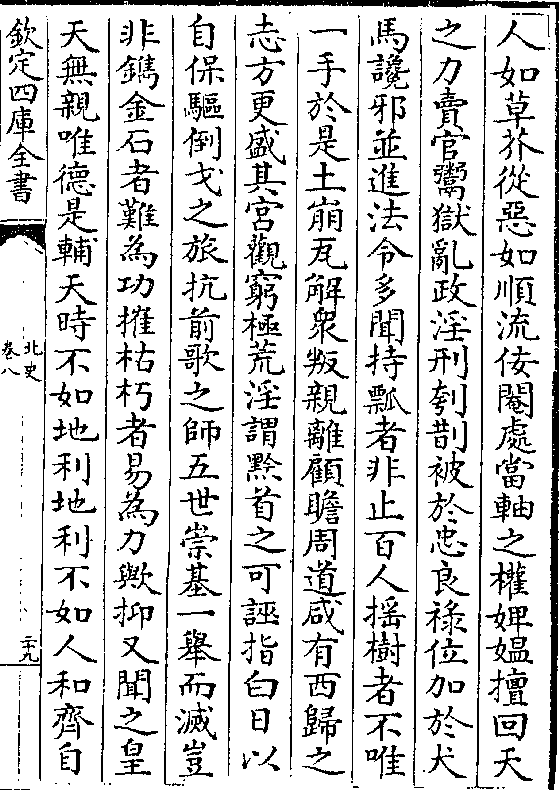 人如草芥從惡如順流佞閹處當軸之權婢媪擅回天
之力賣官鬻獄亂政淫刑刳剒被於忠良祿位加於犬
馬讒邪並進法令多聞持瓢者非止百人揺樹者不唯
一手於是土崩瓦解衆叛親離顧瞻周道咸有西歸之
志方更盛其宫觀窮極荒淫謂黔首之可誣指白日以
自保驅倒戈之旅抗前歌之師五世崇基一舉而滅豈
非鐫金石者難為功摧枯朽者易為力歟抑又聞之皇
天無親唯德是輔天時不如地利地利不如人和齊自
欽定四庫全書
北史
卷八
二十九